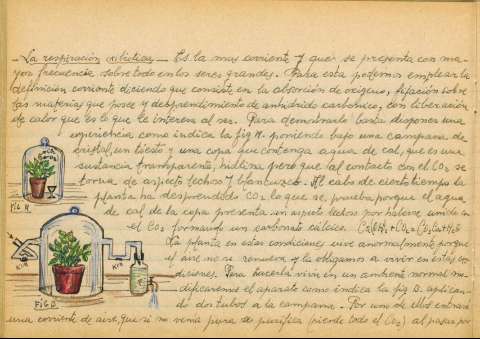 La respiración aerobia.- Es la mas corriente y que se presenta con ma-
yor frecuencia sobre todo en los seres grandes. Para esta podemos emplear la
definición corriente diciendo que consiste en la absorción de oxigeno, fijación sobre
las materias que posee y desprendimiento de anhidrido carbonico, con liberación
de calor que es lo que le interesa al ser. Para demostrarlo basta disponer una
experiencia como indica la fig A. poniendo bajo una campana de
cristal, un tiesto y una copa que contenga agua de cal, que es una
sustancia transparente, pero que al contacto con el CO2 se
torna de aspecto lechoso y blancuzco. Al cabo de cierto tiempo la
planta ha desprendido CO2 lo que se prueba porque el agua
de cal de la copa presenta un aspecto lechoso por haberse unido con
el CO2 formando un carbonato cálcico.
La planta en estas condiciones vive anormalmente porque
el aire no se renueva y la obligamos a vivir en estas con-
diciones. Para hacerla vivir en un ambiente normal mo-
dificaremos el aparato como indica la fig B. aplican-
do dos tubos a la campana. Por uno de ellos entrará
una corriente de aire, que si no venia pura se purifica (pierde todo el CO2) al pasar por
FIG A
FIG B